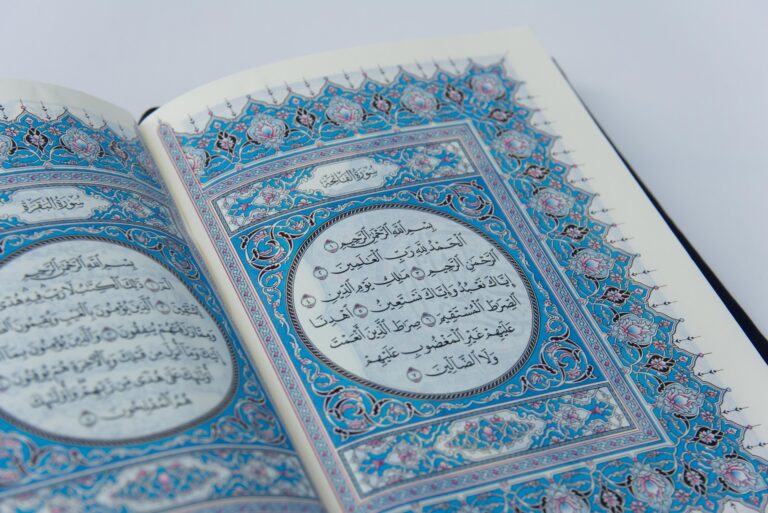 سُورَةُ الْفَاتِحَةِ
بِسْمِ اللَّهِ الرَّحْمَٰنِ الرَّحِيمِ
الْحَمْدُ لِلَّهِ رَبِّ الْعَٰلَمِينَ
الرَّحْمَٰنِ الرَّحِيمِ مَٰلِكِ يَوْمِ الدِّينِ
إِيَّاكَ نَعْبُدُ وَإِيَّاكَ نَسْتَعِينُ اهْدِنَا
الصِّرَٰطَ الْمُسْتَقِيمَ صِرَٰطَ الَّذِينَ أَنْعَمْتَ
عَلَيْهِمْ غَيْرِ الْمَغْضُوبِ عَلَيْهِمْ
وَلَا الضَّالِّينَ
سُورَةُ الْبَقَرَةِ
بِسْمِ اللَّهِ الرَّحْمَٰنِ الرَّحِيمِ
الم ذَٰلِكَ الْكِتَٰبُ لَا رَيْبَ فِيهِ هُدًى
الَّذِينَ يُؤْمِنُونَ بِالْغَيْبِ وَيُقِيمُونَ
رَزَقْنَٰهُمْ يُنفِقُونَ وَالَّذِينَ يُؤْمِنُونَ بِمَا
إِلَيْكَ وَمَا أُنزِلَ مِن قَبْلِكَ وَبِالْآخِرَةِ هُمْ يُوقِنُونَ
أُولَٰئِكَ عَلَىٰ هُدًى مِّن رَّبِّهِمْ وَأُولَٰئِكَ
هُمُ الْمُفْلِحُونَ